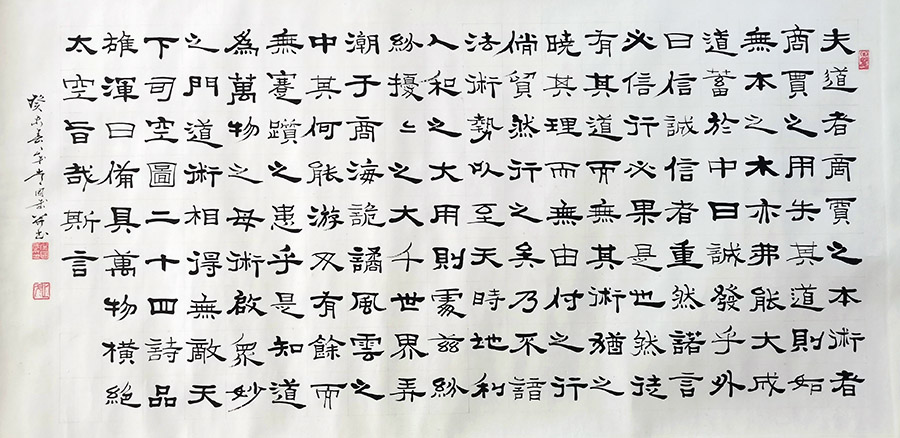 夫道者商賈之本術者
商賈之用失其道則如
無本之木亦弗能大成
道蓄於中曰誠發乎外
曰信誠信者重然諾言
必信行必果是也然徒
有其道而無其術猶之
曉其理而無由付之行
倘貿然行之矣乃不諳
法術勢以至天時地利
人和之大用則處茲紛
紛擾〻之大千世界弄
潮于商海詭譎風雲之
中其何能游刃有餘而
無蹇躓之患乎是知道
為萬物之母術啟眾妙
之門道術相得無敵天
下司空圖二十四詩品
雄渾曰備具萬物橫絕
太空旨哉斯言
癸未春